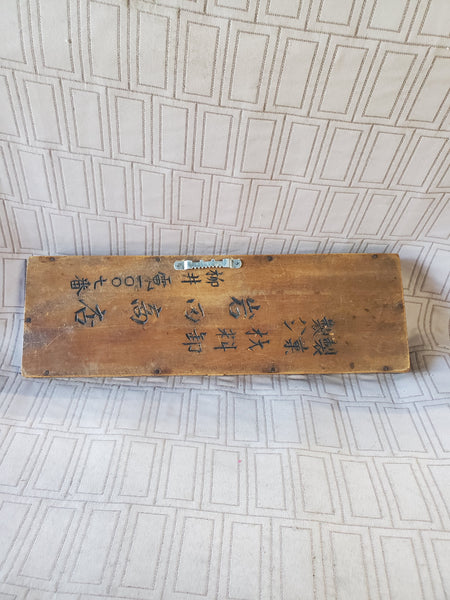 製菓
製パン
材料卸
岩西商店
柳井
電一〇〇七番